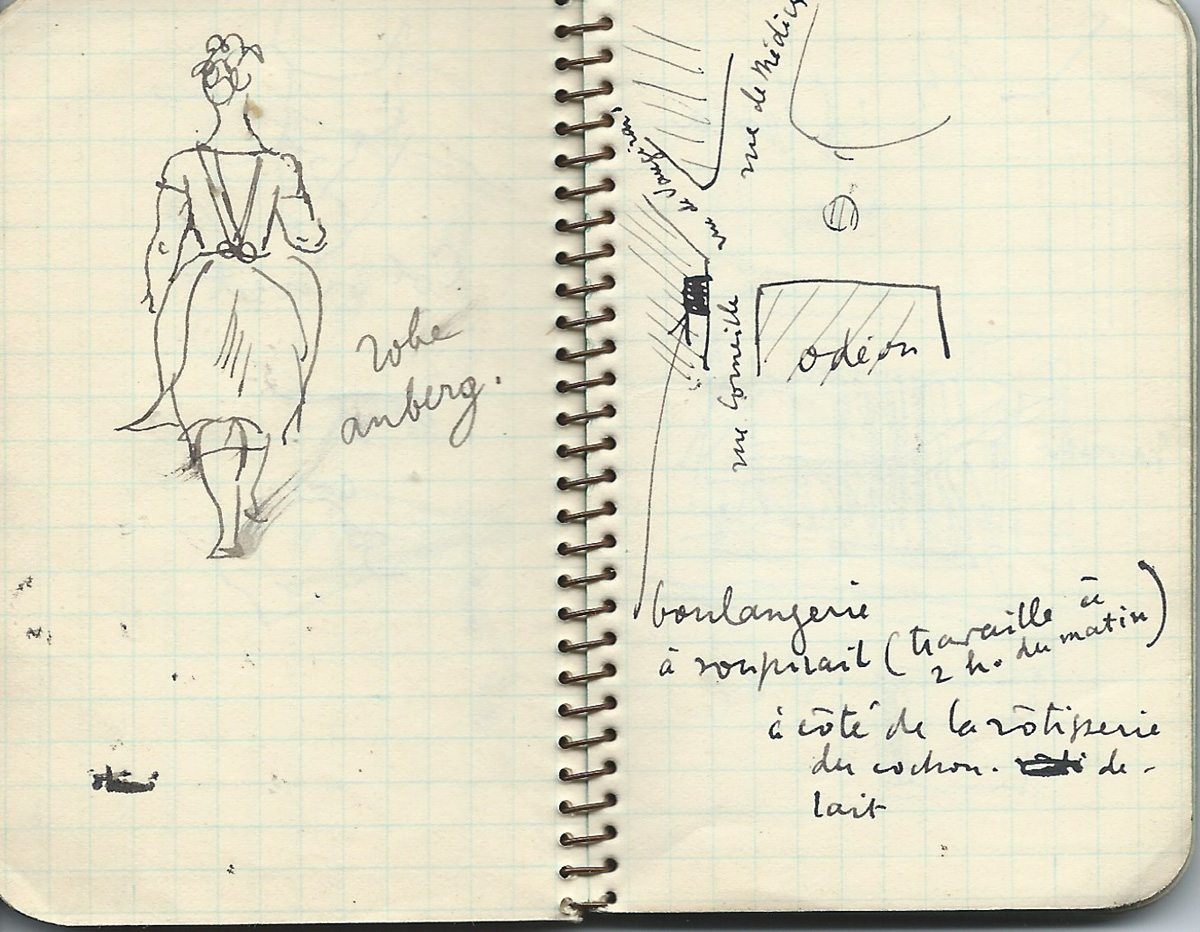 robe
auberg.
rue de Médicis
rue de Vaugirard
rue Corneille
odéon
boulangerie
à soupirail (travaille à
2 h. du matin)
à côté de la rôtisserie
du cochon. de-
lait